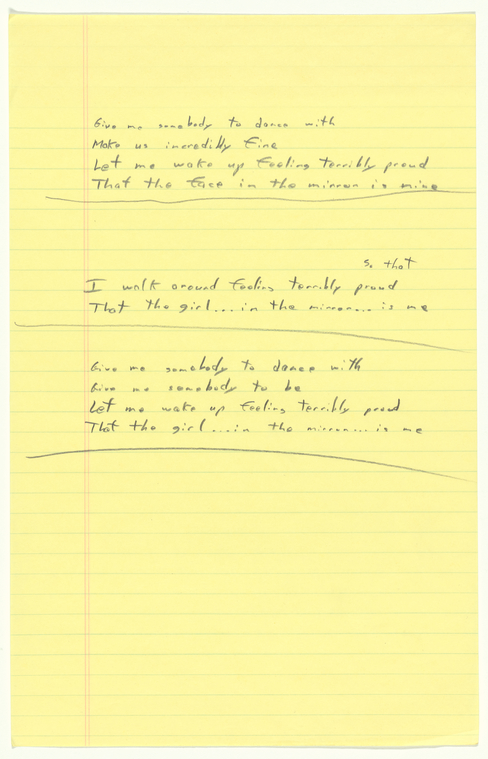 Give me somebody to dance with
Make us incredibly fine
Let me wake up feeling terribly proud
That the face in the mirror is mine
so that
I walk around feeling terribly proud
That the girl... in the mirror... is me
Give me somebody to dance with
Give me somebody to be
Let me wake up feeling terribly proud
That the girl... in the mirror... is me